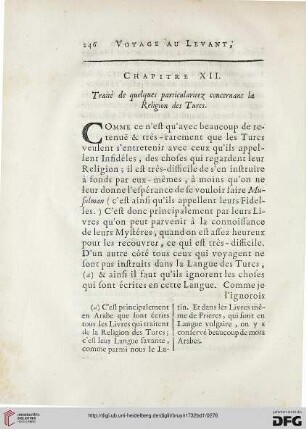 246 VOYAGE AU LEVANT,
CHAPITRE XII.
Traité de quelques particularitez concernant la
Religion des Turcs.
COMME ce n'est qu'avec beaucoup de re-
tenuë & très-rarement que les Turcs
veulent s'entretenir avec ceux qu'ils appel-
lent Infidéles, des choses qui regardent leur
Religion; il est très-difficile de s'en instruire
à fonds par eux-mêmes, à moins qu'on ne
leur donne l'espérance de se vouloir faire Mu-
sulman (c'est ainsi qu'ils appellent leurs Fidel-
les.) C'est donc principalement par leurs Li-
vres qu'on peut parvenir à la connoissance
de leurs Mystéres, quand on est assez heureux
pour les recouvrer, ce qui est très-difficile.
D'un autre côté tous ceux qui voyagent ne
sont pas instruits dans la Langue des Turcs,
(a) & ainsi il faut qu'ils ignorent les choses
qui sont écrites en cette Langue. Comme je
l'ignorois
(a) C'est principalement
en Arabe que sont écrits
tous les Livres qui traitent
de la Religion des Turcs;
c'est leur Langue savante,
comme parmi nous le La-
tin. Et dans les Livres mê-
me de Prieres, qui sont en
Langue vulgaire, on y a
conservé beaucoup de mots
Arabes.
http://digi.ub.uni-heidelberg.de/diglit/bruyn1732bd1/0270
UNIVERSITÄTS-
BIBLIOTHEK
HEIDELBERG
Gefördert durch die
DFG